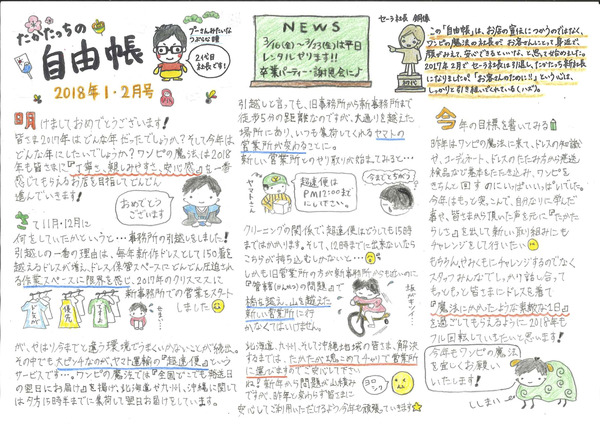 たかたっちの
自由帳
2018年1・2月号
プーさんみたいな
つぶらな瞳
2代目
社長です!
NEWS
3/16(金)~3/23(金)は平日
レンタルゼリます!!
卒業パーティー・謝恩会に♪
セーラ社長 銅像
初代
この「自由帳」は、お店の宣伝につかうのではなく、
ワンピの魔法の社長が、お客さんにとって身近で、
顔がみえて、安心できるといいな、と思って始めました。
2017年2月でセーラ社長は引退し、たかたっち新社長
になりましたが「お客さんのために!!」という心は、
しっかりと引き継いでくれている(いつづ)。
明けましておめでとうございます!
皆さま2017年はどんな年だったでしょうか?そして今年は
どんな年にしたいでしょうか?ワンピの魔法は2018
年も皆さまに『丁寧さ、親しみやすさ、安心感』を一番
感じてもらえるお店を目指してどんどん
進んでいきます!
おめでとう
ございます
さて11月・12月に
何をしていたかというと…事務所の引越しをしました!
引越しの一番の理由は、毎年新作ドレスとして150着を
越えるドレスが増え、ドレス保管スペースにどんどん圧迫され
る作業スペースに限界を感じ、2017年のクリスマスに
新事務所での営業をスタート
しました
が、やはり今までと違う環境でうまくいかないことが続出。
その中でも大ピンチなのが、ヤマト運輸の『超速便』という
サービスです…。ワンピの魔法では『全国どこでも発送日
の翌日にお届け』を掲げ、北海道や九州、沖縄に関して
は夕方15時半までに集荷して翌日お届けをしています。
引越しと言っても、旧事務所から新事務所まで
徒歩5分の距離なのですが、大通りを越えた
場所にあり、いつも集荷してくれるヤマトの
営業所が変わることに。
新しい営業所とのやり取りが始まってみると…
ヤマトさん
超速便は
PM12:00まで
にしいさい。
今までとちがう!
クリーニングの関係で、超速便はどうしても15時
まではかかります。そして、12時までに出来ないなら
こちらが持ち込むしかないと…
しかも旧営業所の方が新事務所からも近いのに
『管轄(かんかつ)の問題』で
橋を越え、山を越えた
新しい営業所に行
かなくてはいけません。
坂がキツイ!
北海道、九州、そして沖縄地域の皆さま、解決
するまでは、たかたが魂こめてチャリで営業所
に運びますのでご安心して下さい
ね!新年から問題が山積み
ですが、昨年と変わらず皆さまに
安心してご利用いただけるよう今年も頑張っていきます
今年の目標を書いてみる
昨年はワンピの魔法に来て、ドレスの知識
や、コーディネート、ドレスのたたみ方から発送
検品など基本をたたき込み、ワンピを
きちんと回すのにいっぱいいっぱいでした。
今年はもっと突っこんで、自分なりに学んだ
事や、皆さまから頂いた声を元に『たかたっ
らしさ』を出して新しい取り組みにも
チャレンジをして行いたい
もちろん、やみくもにチャレンジするのでなく
スタッフみんなでしっかり話し合って
もっともっと皆さまにドレスを着て
『魔法にかかったような素敵な1日』
を過ごしてもらえるように、2018年も
フル回転していきたいと思います!
今年もワンピの魔法
を宜しくお願い
いたします!
ししまい